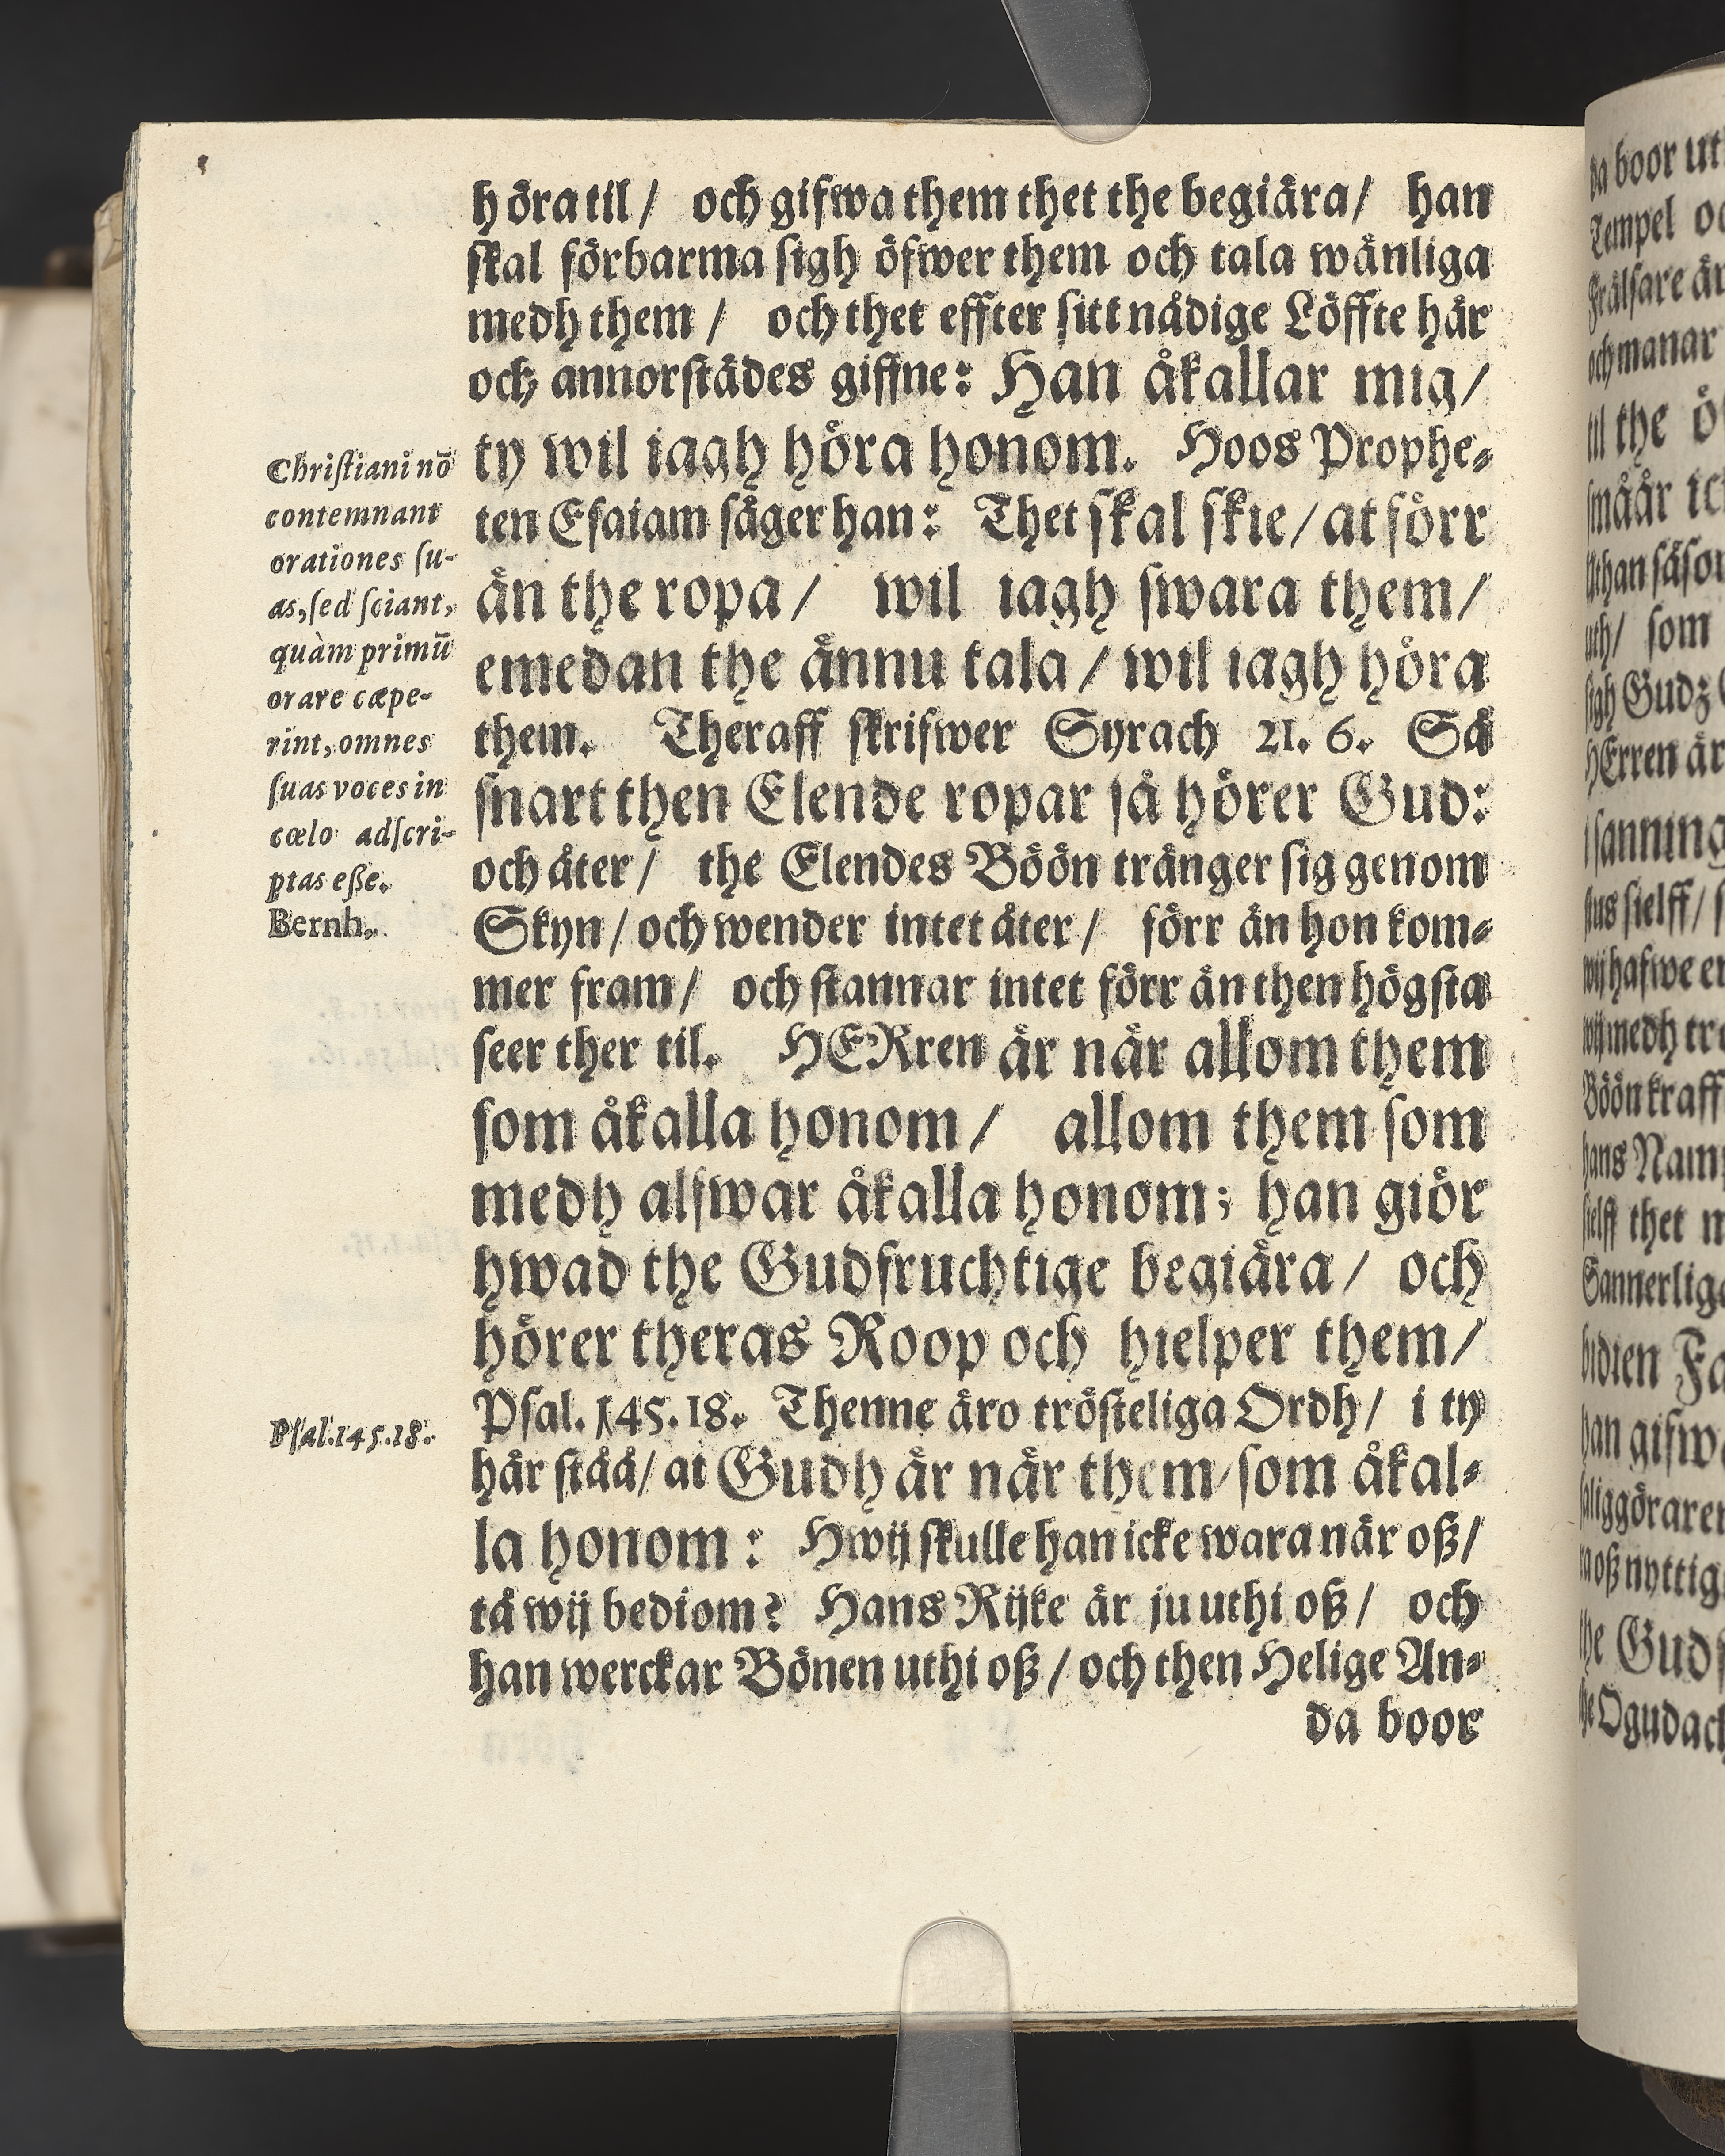 höra til / och gifwa them thet the begiära / han
skal förbarma sigh öfwer them och tala wänliga
medh them / och thet effter sitt nådige Löffte här
och annorstädes giffne: Han åkallar mig /
ty wil iagh höra honom. Hoos Prophe-
ten Esaiam säger han: Thet skal skie / at förr
än the ropa / wil iagh swara them /
emedan the ännu tala / wil iagh höra
them. Theraff skrifwer Syrach 21. 6. Så
snart then Elende ropar så hörer Gud:
och åter / the Elendes Böön tränger sig genom
Skyn / och wender intet åter / förr än hon kom-
mer fram / och stannar intet förr än then högsta
seer ther til. HERren är när allom them
som åkalla honom / allom them som
medh alfwar åkalla honom; han giör
hwad the Gudfruchtige begiära / och
hörer theras Roop och hielper them /
Psal. 145. 18. Thenne äro trösteliga Ordh / i ty
här stå̊å / at Gudh är när them / som åkal-
la honom: Hwij skulle han icke wara när oß /
tå wij bediom? Hans Rijke är ju uthi oß / och
han werckar Bönen uthi oß / och then Helige An-
da boor
Christiani nō
contemnant
orationes su-
as, sed sciant,
quàm primū
orare cæpe-
rint, omnes
suas voces in
cœlo adscri-
ptas eße.
Bernh.
Psal. 145. 18.
da boor
Tempel
Frälsare är
och manar
til the
småår
Uthan såsom
uth / som
sigh Gudz
HErren är
i sanning
sielff /
wij hafwe
wij medh
Böön
hans Namn
sielff thet
Sannerliga
han
oß nyttig
the